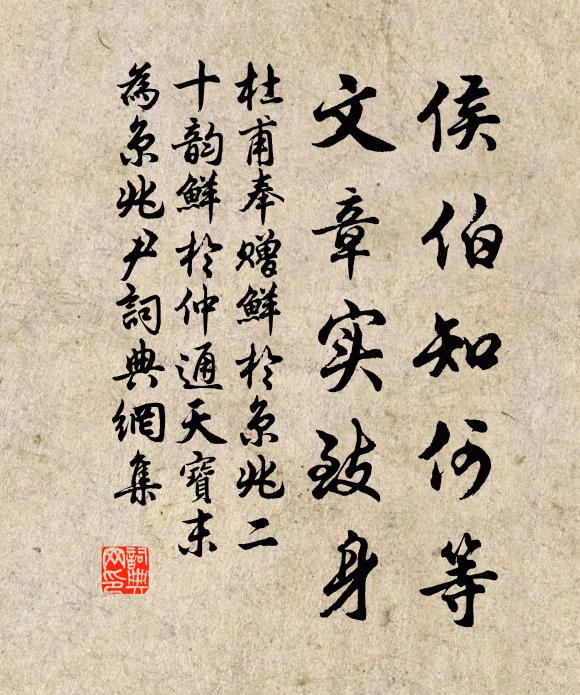 侯伯知何等
文章实致身
杜甫奉赠鮮於京兆二
十韵鮮於仲通天寶末
為京兆尹詞典網集
詞典
网印